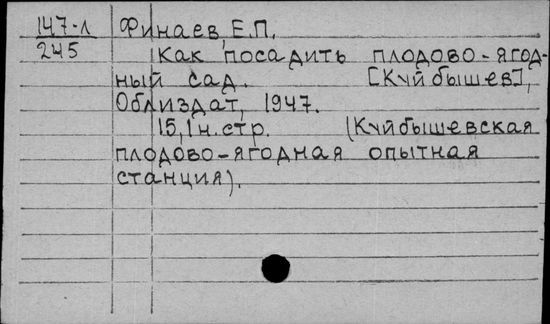 147-л Финаев, Е.П.
245 Как посадить плодово-ягод-
ный сад. [Куйбышев],
Облиздат, 1947.
15,1н.стр. (Куйбышевская
плодово-ягодная опытная
станция).